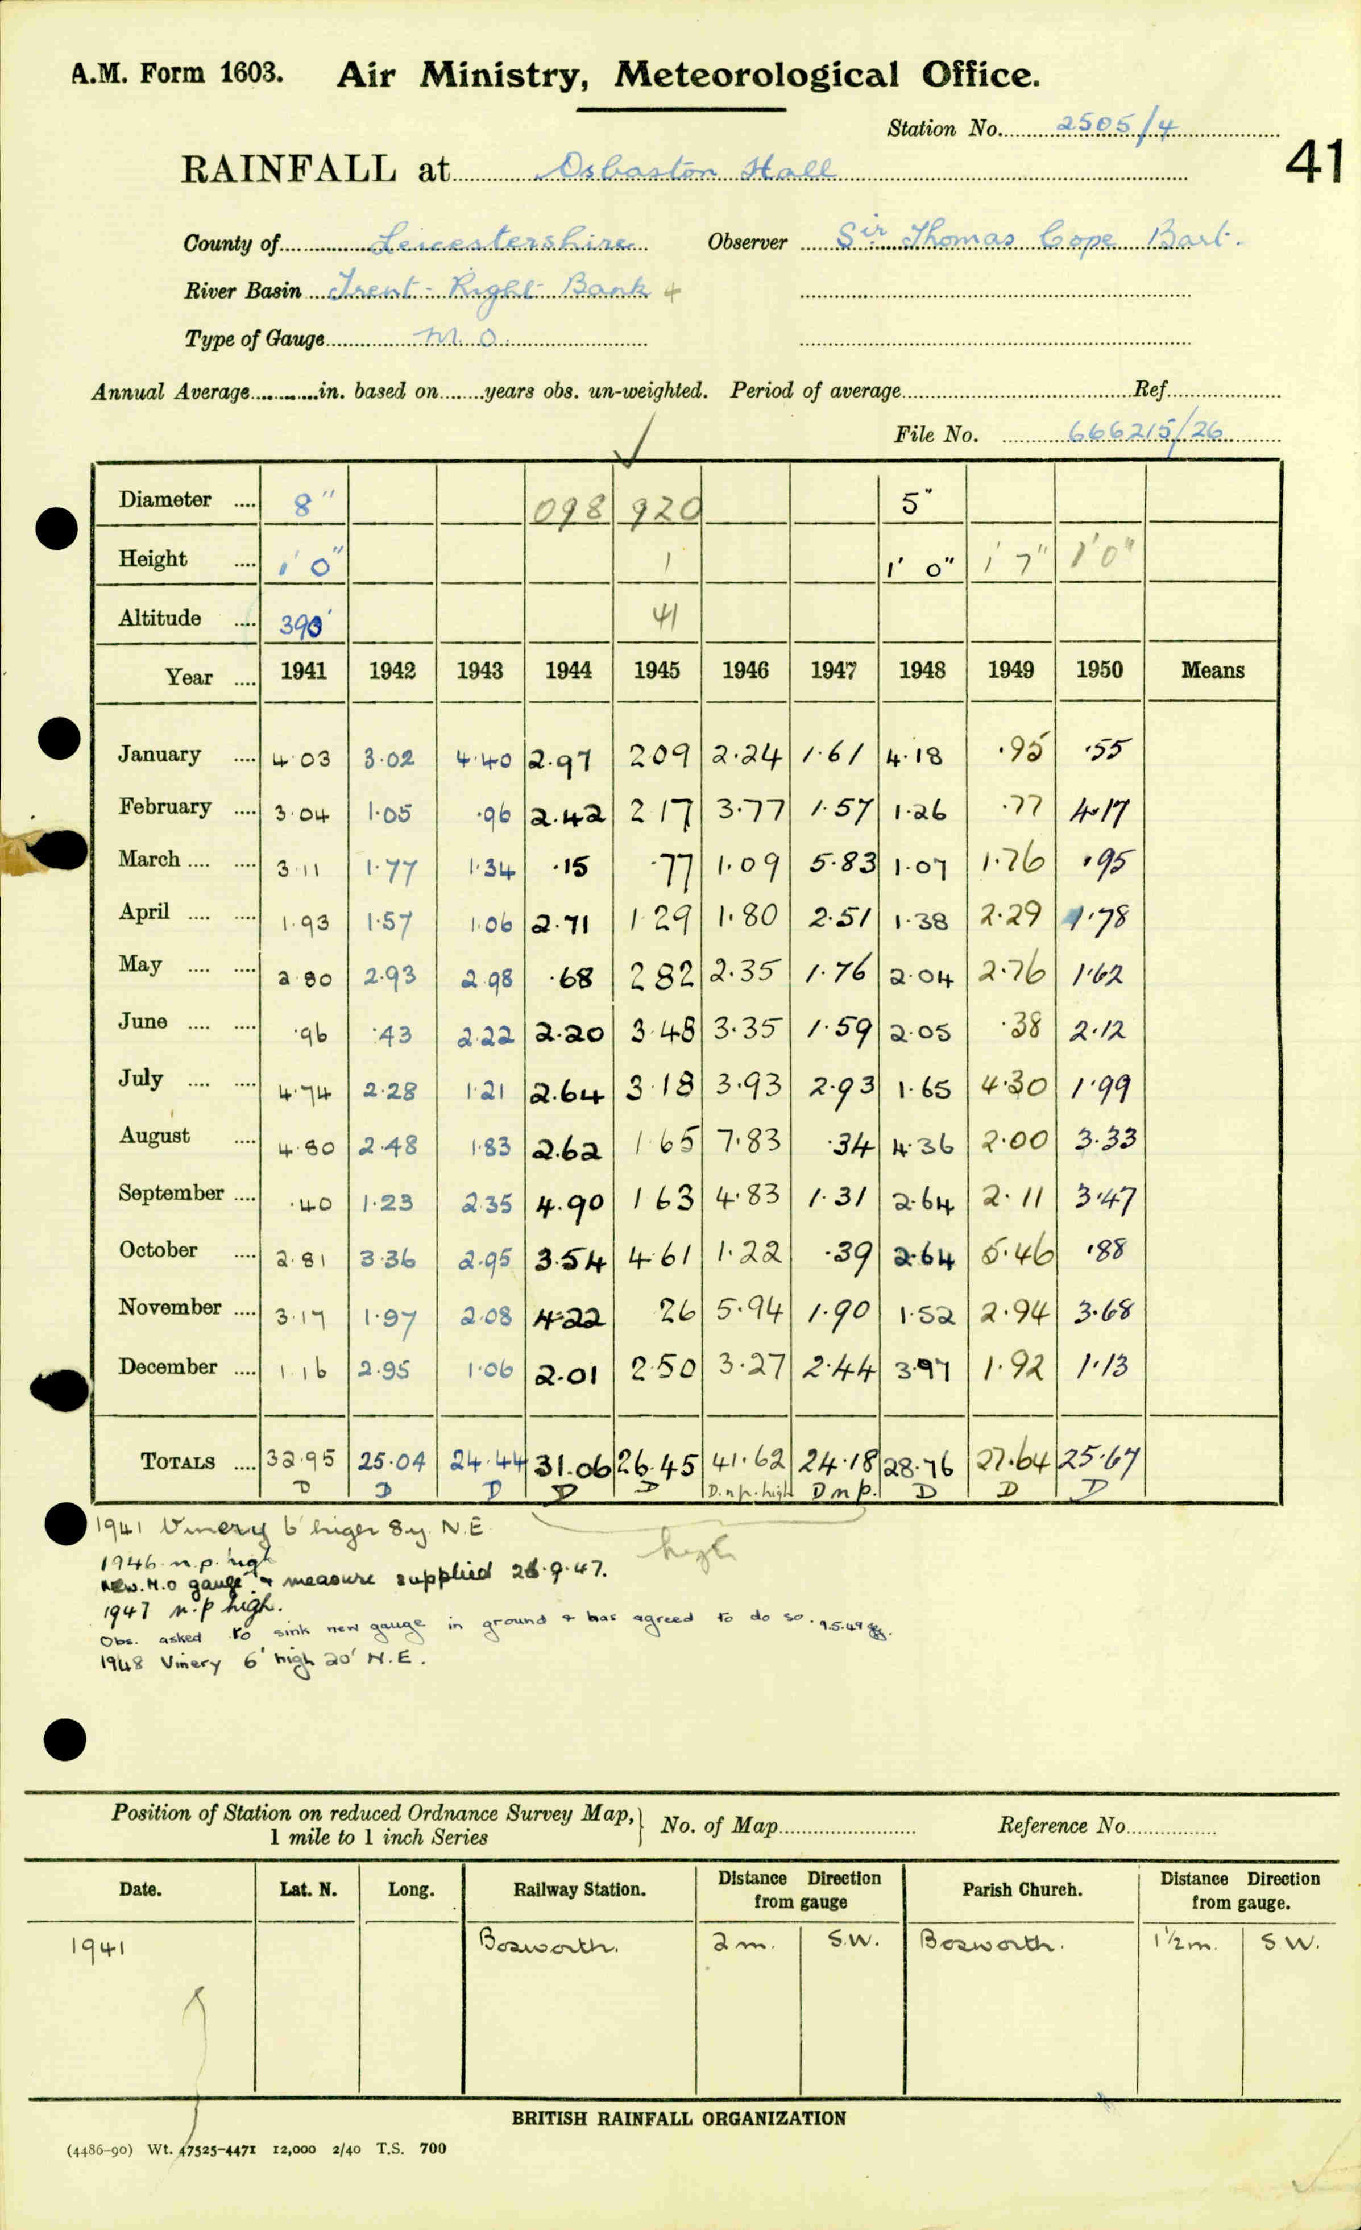 A.M. Form 1603. Air Ministry, Meteorological Office.
Station No. 2505/4
41
RAINFALL at Osbaston Hall
County of Leicestershire Observer Sir Thomas Cope Bart.
River Basin Trent - Right Bank +
Type of Gauge M.O.
Annual Average in. based on years obs. un-weighted. Period of average Ref.
File No. 666215/26
Diameter 8" 098 920 5"
Height 1' 0" 1 1' 0" 1' 7" 1' 0"
Altitude 390' 41
Year 1941 1942 1943 1944 1945 1946 1947 1948 1949 1950 Means
January 4.03 3.02 4.40 2.97 2 09 2.24 1.61 4.18 .95 .55
February 3.04 1.05 .96 2.42 2 17 3.77 1.57 1.26 .77 4.17
March 3.11 1.77 1.34 .15 .77 1.09 5.83 1.07 1.76 .95
April 1.93 1.57 1.06 2.71 1 29 1.80 2.51 1.38 2.29 1.78
May 2.80 2.93 2.98 .68 2 82 2.35 1.76 2.04 2.76 1.62
June .96 .43 2.22 2.20 3.48 3.35 1.59 2.05 .38 2.12
July 4.74 2.28 1.21 2.64 3 18 3.93 2.93 1.65 4.30 1.99
August 4.80 2.48 1.83 2.62 1 65 7.83 .34 4.36 2.00 3.33
September .40 1.23 2.35 4.90 1 63 4.83 1.31 2.64 2.11 3.47
October 2.81 3.36 2.95 3.54 4 61 1.22 .39 2.64 5.46 .88
November 3.17 1.97 2.08 4.22 26 5.94 1.90 1.52 2.94 3.68
December 1.16 2.95 1.06 2.01 2.50 3.27 2.44 3.97 1.92 1.13
TOTALS 32.95 25.04 24.44 31.06 26.45 41.62 24.18 28.76 27.64 25.67
D D D D D D.n.p. high D n p. D D D
high
1941 Vinery 6' higer 8y N.E
1946 n.p. high
New. M.O gauge & measure supplied 26.9.47.
1947 n.p high.
Obs. asked to sink new gauge in ground & has agreed to do so. 9.5.49
1948 Vinery 6' high 20' N.E.
Position of Station on reduced Ordnance Survey Map, 1 mile to 1 inch Series No. of Map Reference No.
Date. Lat. N. Long. Railway Station. Distance Direction from gauge Parish Church. Distance Direction from gauge.
1941 Bosworth. 2 m. S.W. Bosworth. 1½m. S W.
BRITISH RAINFALL ORGANIZATION
(4486-90) Wt. 47525-4471 12,000 2/40 T.S. 700